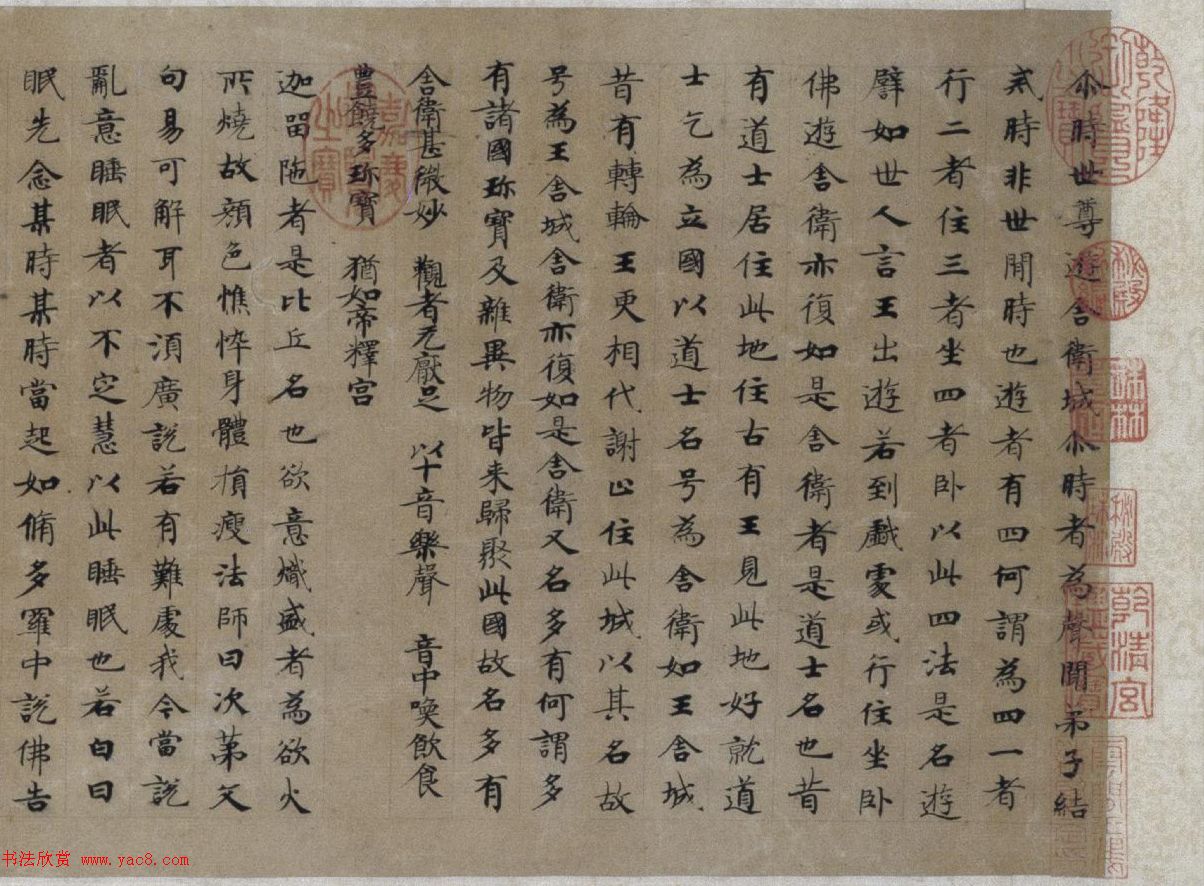 尒時世尊遊舍衛城尒時者為聲聞弟子結
戒時非世間時也遊者有四何謂為四一者
行二者住三者坐四者卧以此四法是名遊
譬如世人言王出遊若到戲處或行住坐卧
佛遊舍衛亦復如是舍衛者是道士名也昔
有道士居住此地住古有王見此地好就道
士乞為立國以道士名号為舍衛如王舍城
昔有轉輪王更相代謝止住此城以其名故
号為王舍城舍衛亦復如是舍衛又名多有何謂多
有諸國珎寶及雜異物皆来歸聚此國故名多有
舍衛甚微妙 觀者无厭足 以十音樂聲 音中喚飲食
豊饒多珎寶 猶如帝釋宫
迦留陁者是比丘名也欲意熾盛者為欲火
所燒故顏色憔悴身體損瘦法師曰次第文
句易可解耳不湏廣說若有難處我今當說
亂意睡眠者以不定慧以此睡眠也若白日
眠先念某時某時當起如脩多羅中說佛告
乾清宫
秘殿
珠林
嘉慶
书法欣赏 www.yac8.com